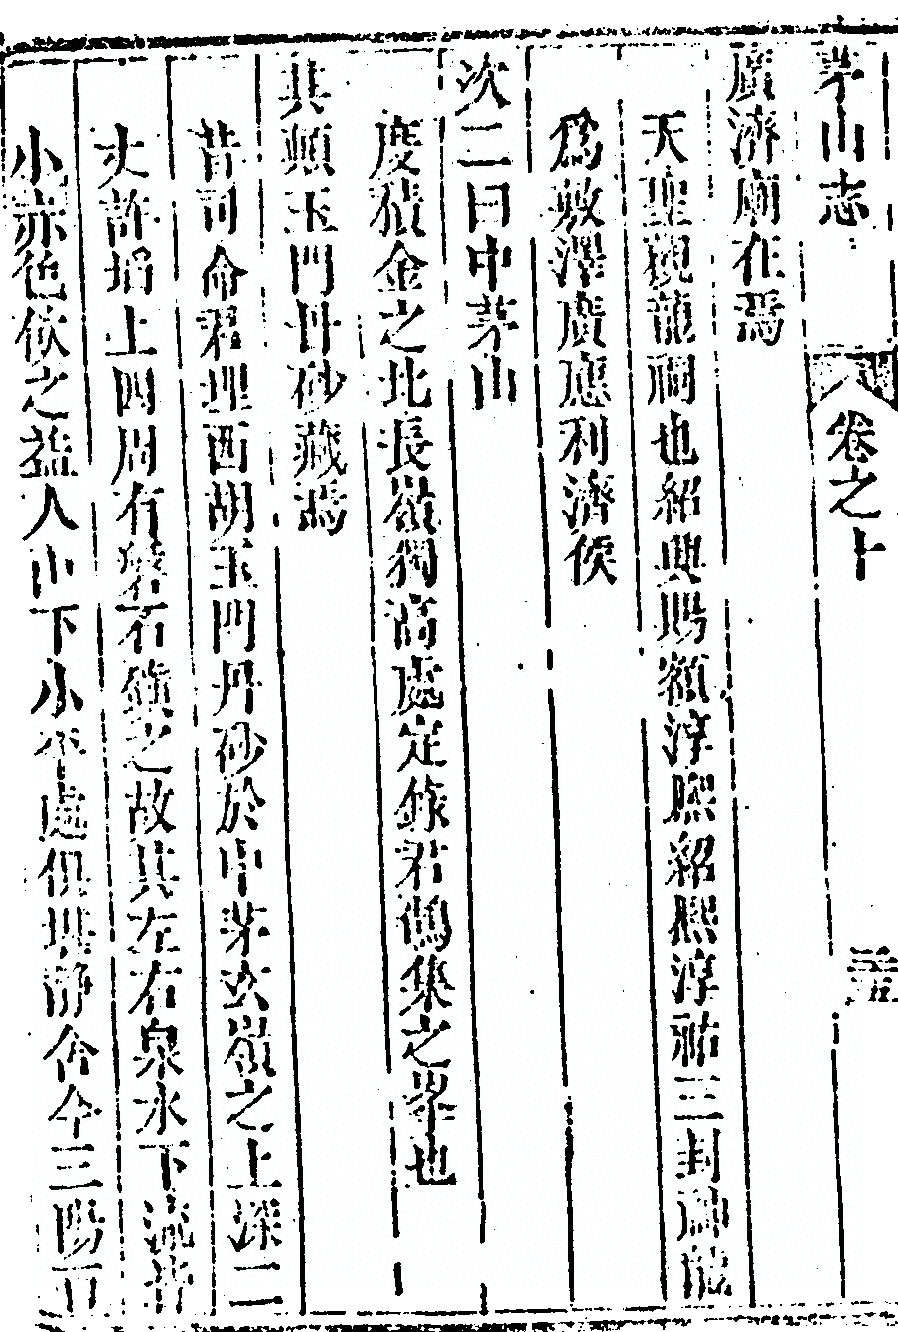 茅山志 卷之十
廣濟廟在焉
天聖觀龍祠也紹興賜額淳熙紹熙淳祐三封爵龍
爲敷澤廣應利濟侯
次二曰中茅山
度積金之北長嶺獨高處定錄君鶴集之峯也
其頭玉門丹砂藏焉
昔司命君埋西胡玉門丹砂於中茅玄嶺之上深二
丈許塪上四周有磐石鎮之故其左右泉水下流皆
小赤色飲之益人山下小平處俱堪靜舍今三陽百